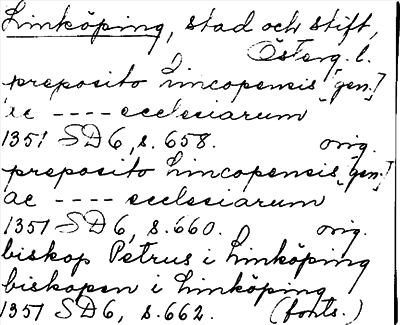 Linköping, stad och stift,
Österg. l.
preposito Lincopensis [gen.]
ac ---- ecclesiarum
1351 SD6, s. 658. orig.
preposito Lincopensis [gen.]
ac ---- ecclesiarum
1351 SD6, s. 660. orig.
biskop Petrus i Linköping
biskopen i Linköping
1351 SD6, s. 662. (forts.)